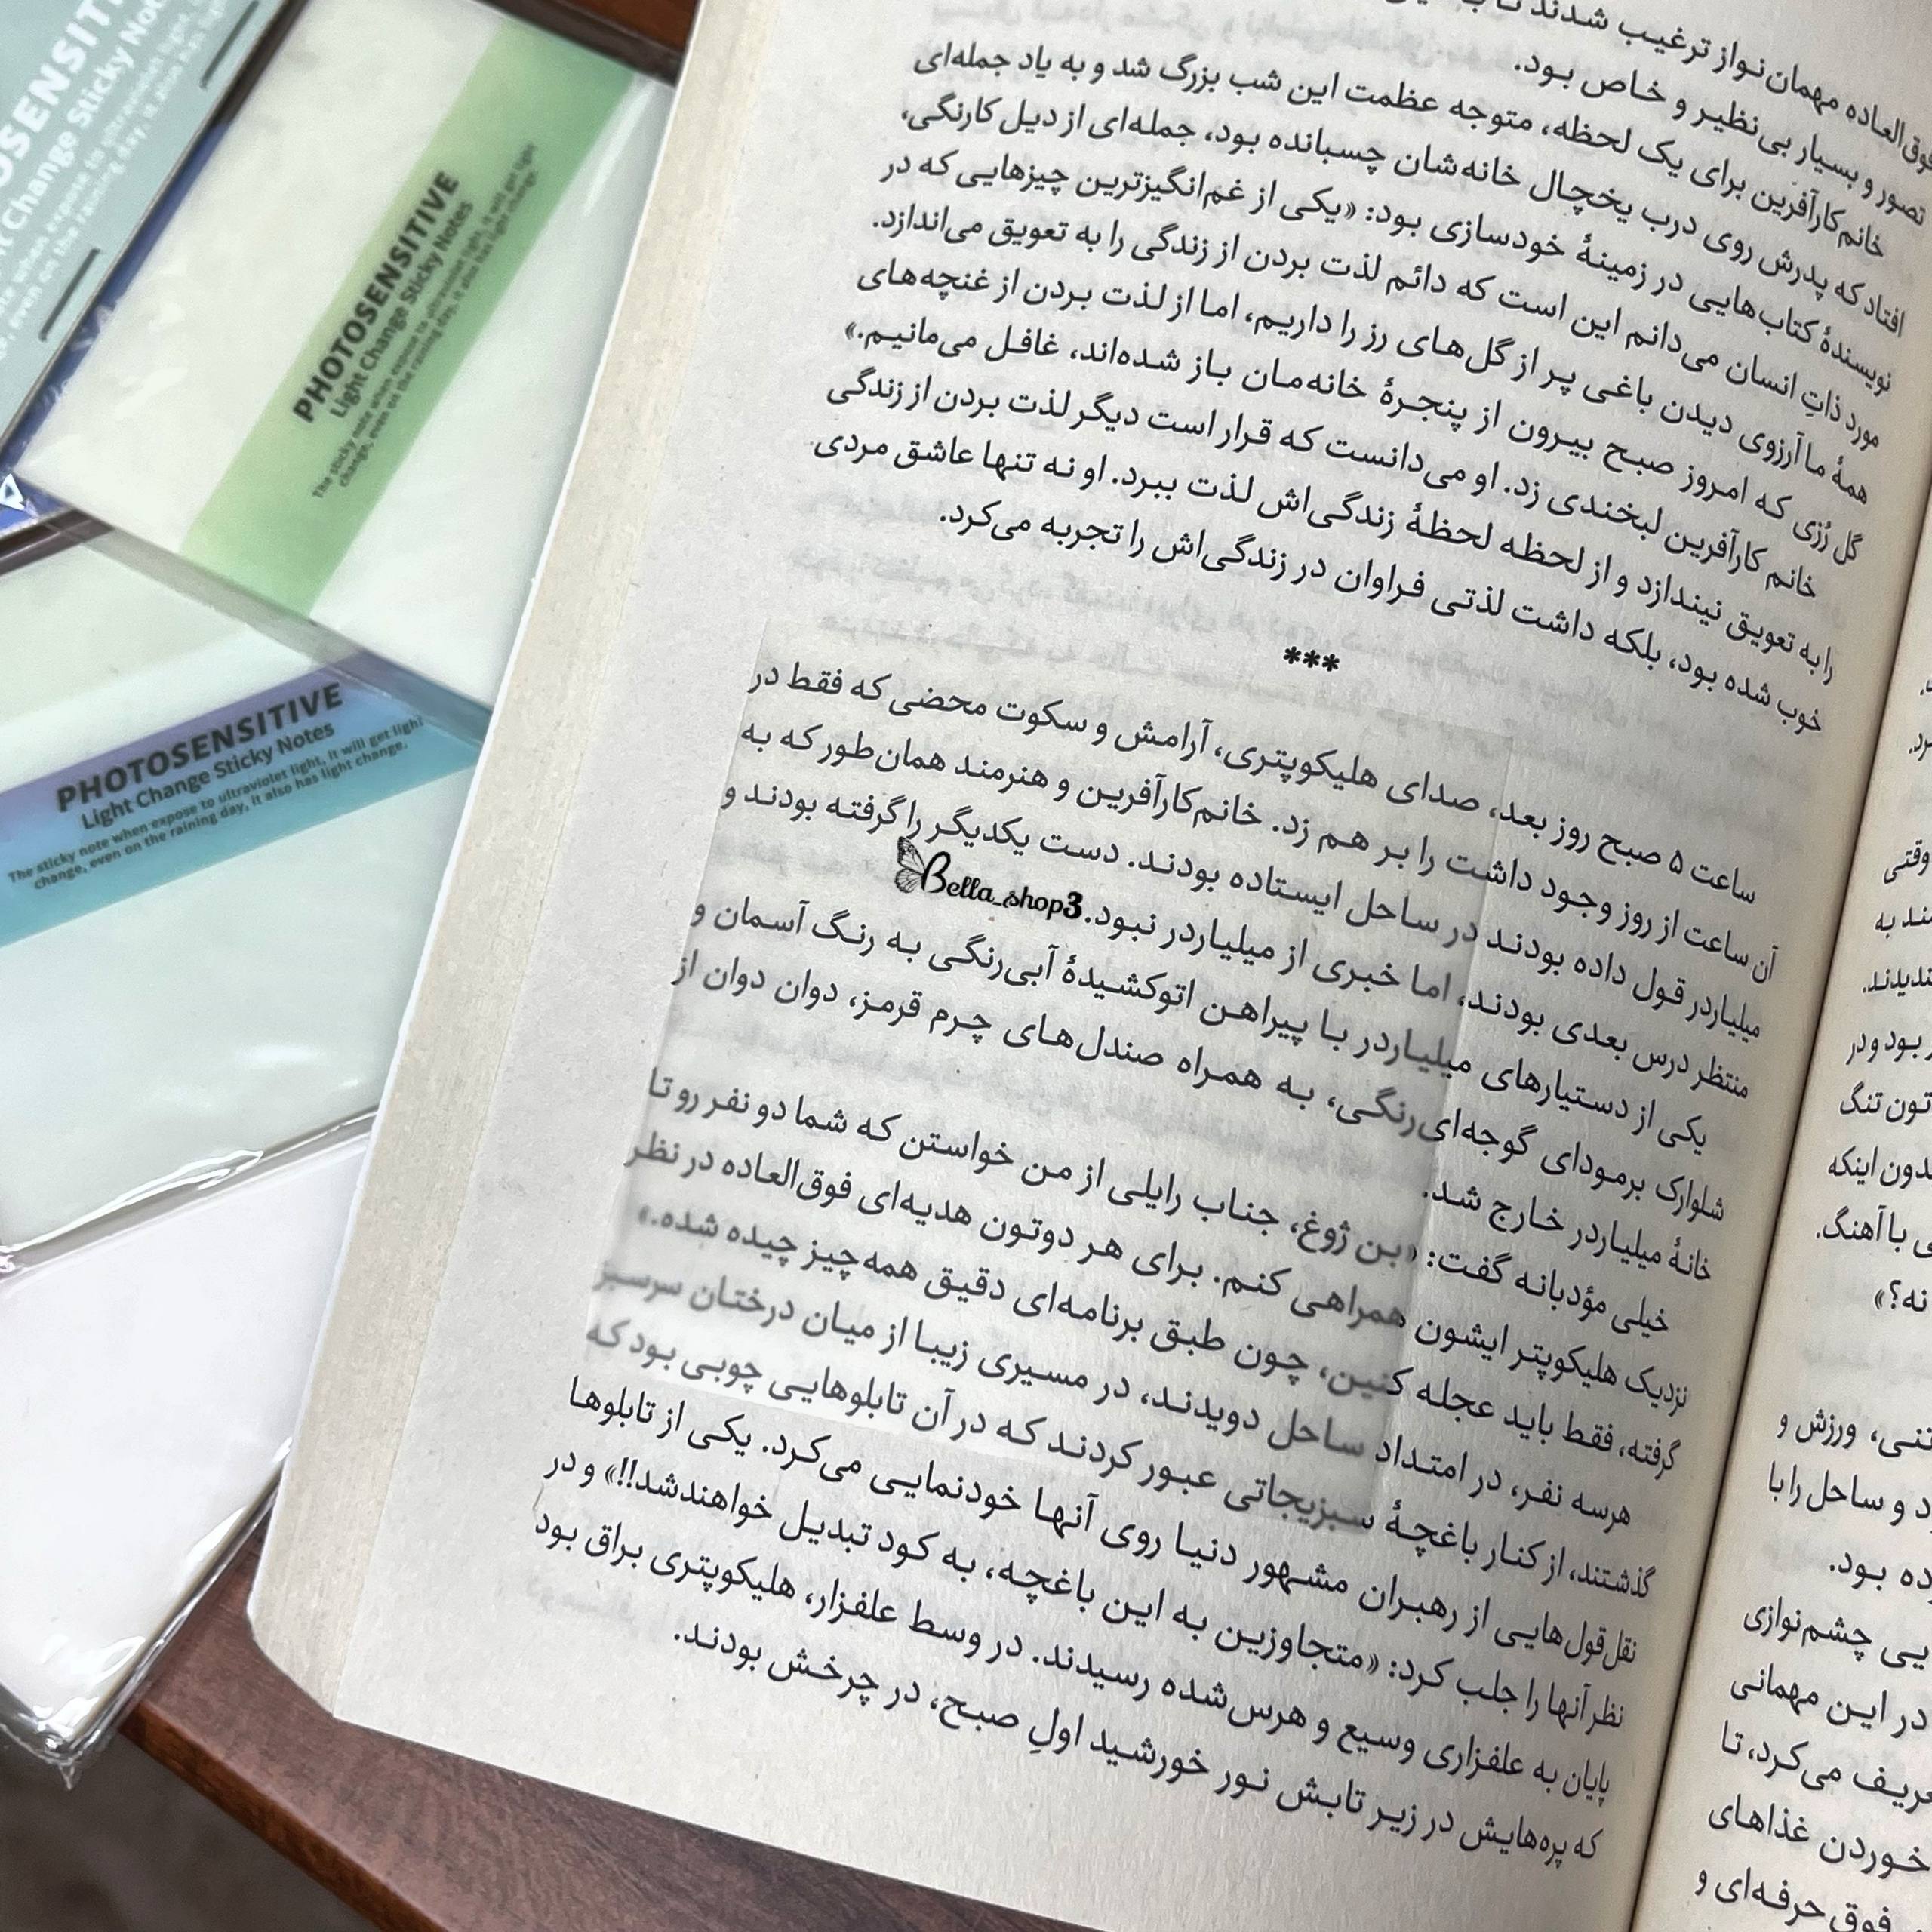 PHOTOSENSITIVE
Light Change Sticky Notes
The sticky note when expose to ultraviolet light, it will get light
change, even on the raining day, it also has light change.
PHOTOSENSITIVE
Light Change Sticky Notes
The sticky note when expose to ultraviolet light, it will get light
change, even on the raining day, it also has light change.
فوق‌العاده مهمان‌نواز ترغیب شدند تا
تصور و بسیار بی‌نظیر و خاص بود.
خانم‌کارآفرین برای یک لحظه، متوجه عظمت این شب بزرگ شد و به یاد جمله‌ای
افتاد که پدرش روی درب یخچال خانه‌شان چسبانده بود، جمله‌ای از دیل کارنگی،
نویسندهٔ کتاب‌هایی در زمینهٔ خودسازی بود: «یکی از غم‌انگیزترین چیزهایی که در
مورد ذاتِ انسان می‌دانم این است که دائم لذت بردن از زندگی را به تعویق می‌اندازد.
همهٔ ما آرزوی دیدن باغی پر از گل‌های رز را داریم، اما از لذت بردن از غنچه‌های
گل رُزی که امروز صبح بیرون از پنجرهٔ خانه‌مان باز شده‌اند، غافل می‌مانیم.»
خانم کارآفرین لبخندی زد. او می‌دانست که قرار است دیگر لذت بردن از زندگی
را به تعویق نیندازد و از لحظه لحظهٔ زندگی‌اش لذت ببرد. او نه تنها عاشق مردی
خوب شده بود، بلکه داشت لذتی فراوان در زندگی‌اش را تجربه می‌کرد.
***
ساعت ۵ صبح روز بعد، صدای هلیکوپتری، آرامش و سکوت محضی که فقط در
آن ساعت از روز وجود داشت را بر هم زد. خانم‌کارآفرین و هنرمند همان‌طور که به
میلیاردر قول داده بودند در ساحل ایستاده بودند. دست یکدیگر را گرفته بودند و
منتظر درس بعدی بودند، اما خبری از میلیاردر نبود.
Bella_shop3
یکی از دستیارهای میلیاردر با پیراهن اتوکشیدهٔ آبی‌رنگی به رنگ آسمان و
شلوارک برمودای گوجه‌ای‌رنگی، به همراه صندل‌های چرم قرمز، دوان دوان از
خانهٔ میلیاردر خارج شد.
خیلی مؤدبانه گفت: «بن ژوغ، جناب رایلی از من خواستن که شما دو نفر رو تا
نزدیک هلیکوپتر ایشون همراهی کنم. برای هر دوتون هدیه‌ای فوق‌العاده در نظر
گرفته، فقط باید عجله کنین، چون طبق برنامه‌ای دقیق همه‌چیز چیده شده.»
هرسه نفر، در امتداد ساحل دویدند، در مسیری زیبا از میان درختان سرسبز
گذشتند، از کنار باغچهٔ سبزیجاتی عبور کردند که در آن تابلوهایی چوبی بود که
نقل‌قول‌هایی از رهبران مشهور دنیا روی آنها خودنمایی می‌کرد. یکی از تابلوها
نظر آنها را جلب کرد: «متجاوزین به این باغچه، به کود تبدیل خواهندشد!!» و در
پایان به علفزاری وسیع و هرس‌شده رسیدند. در وسط علفزار، هلیکوپتری براق بود
که پره‌هایش در زیر تابش نور خورشید اولِ صبح، در چرخش بودند.
وقتی
تون تنگ
دون اینکه
با آهنگ.
نه؟»
تنی، ورزش و
و ساحل را با
ده بود.
یی چشم‌نوازی
در این مهمانی
ریف می‌کرد، تا
خوردن غذاهای
فوق حرفه‌ای و